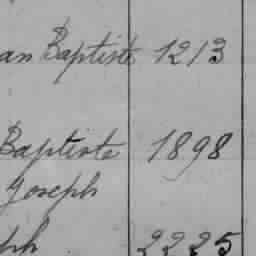 an Baptiste 1213
Baptiste 1898
Joseph
ph 2225